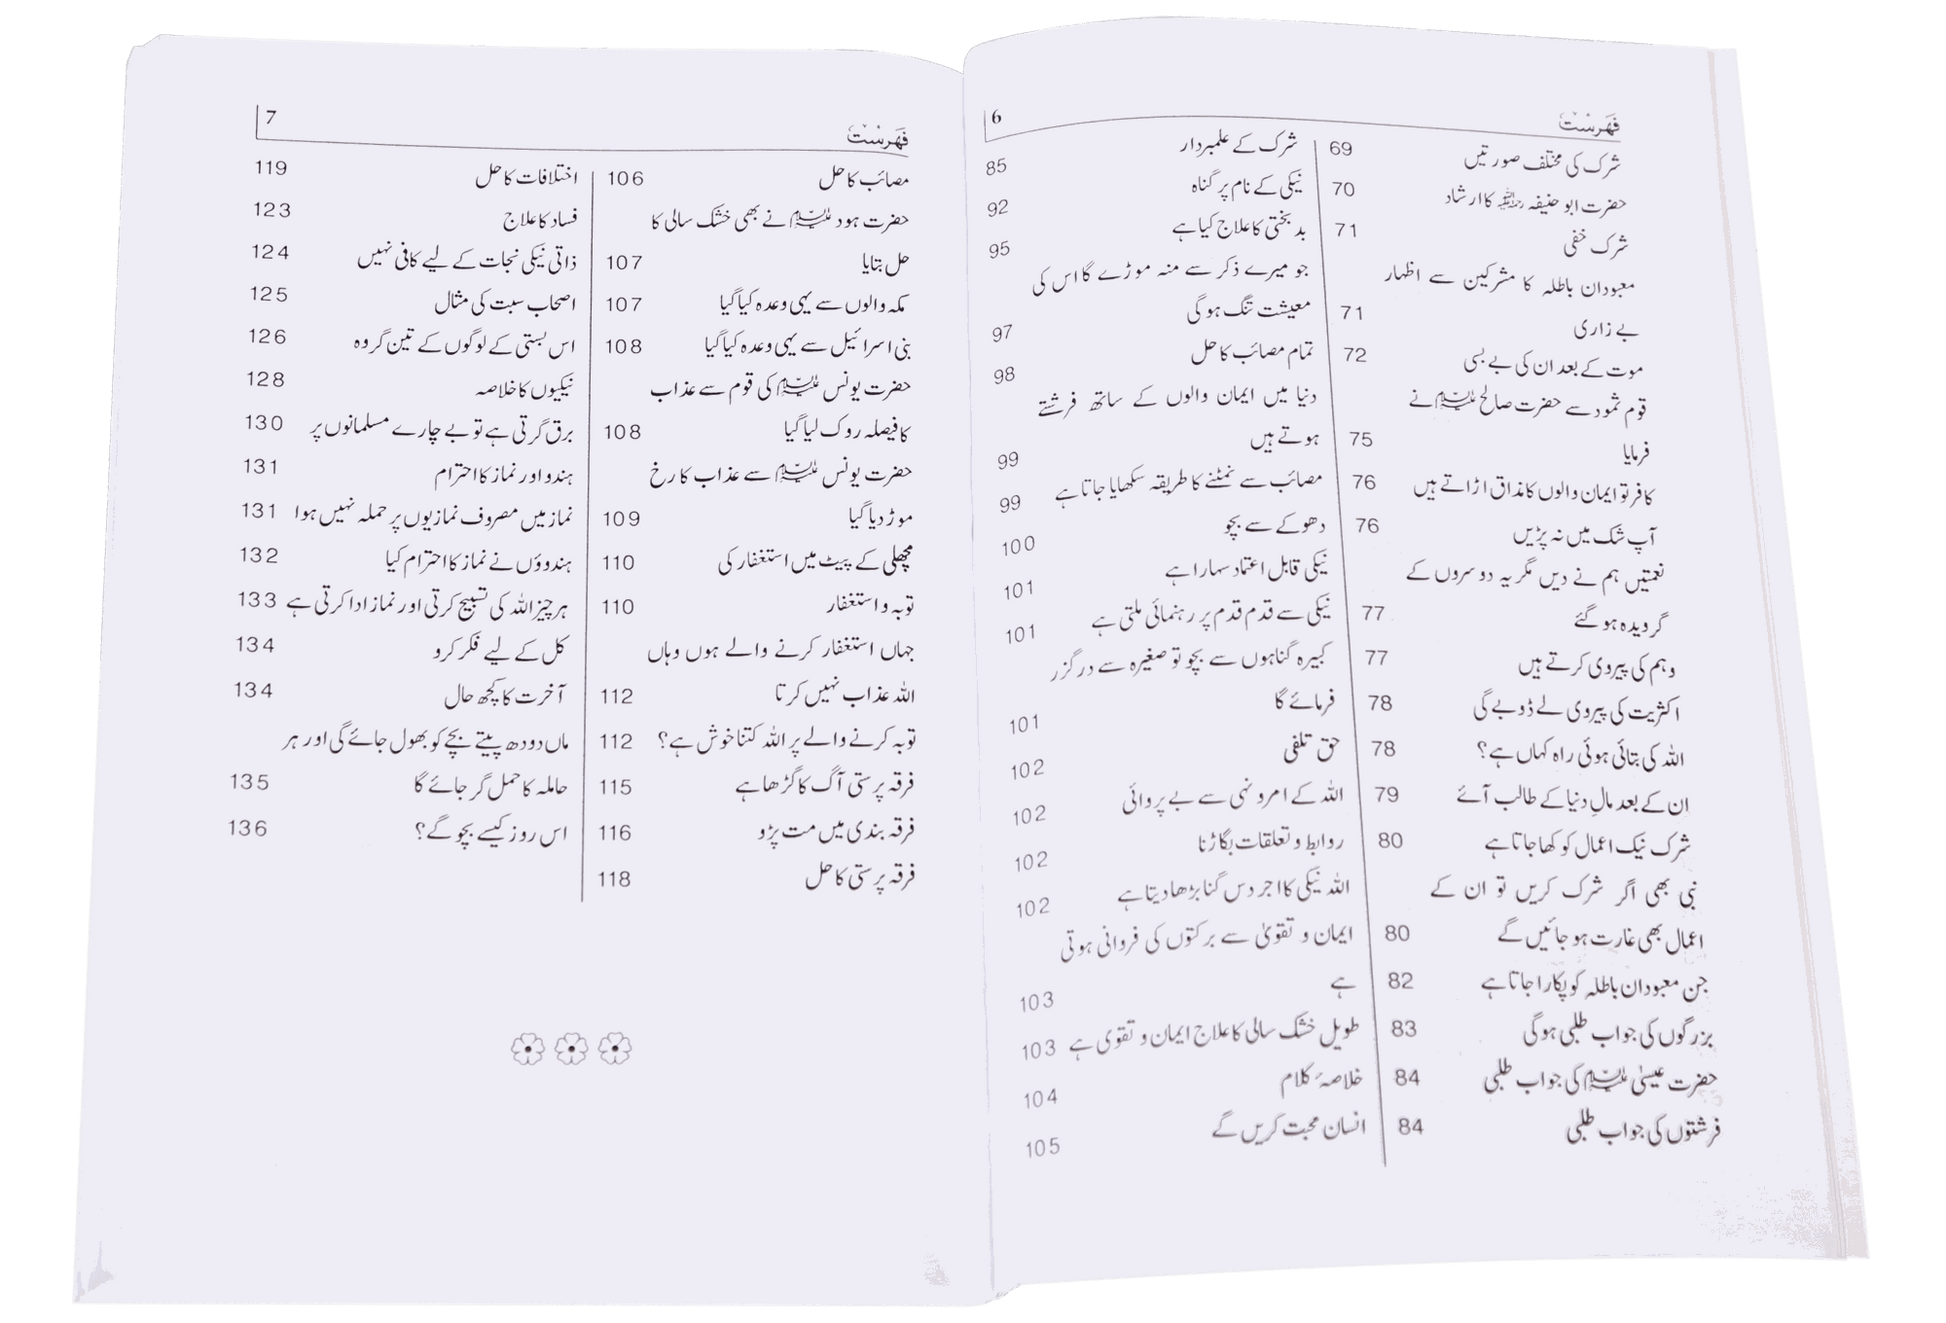 فَهرِسْت 6
شرک کی مختلف صورتیں 69
حضرت ابو حنیفہ رحمہ اللہ کا ارشاد 70
شرک خفی 71
معبودان باطلہ کا مشرکین سے اظہار
بے زاری 71
موت کے بعد ان کی بے بسی 72
قوم ثمود سے حضرت صالح علیہ السلام نے
فرمایا 75
کافر تو ایمان والوں کا مذاق اڑاتے ہیں 76
آپ شک میں نہ پڑیں 76
نعمتیں ہم نے دیں مگر یہ دوسروں کے
گرویدہ ہو گئے 77
وہم کی پیروی کرتے ہیں 77
اکثریت کی پیروی لے ڈوبے گی 78
اللہ کی بتائی ہوئی راہ کہاں ہے؟ 78
ان کے بعد مالِ دنیا کے طالب آئے 79
شرک نیک اعمال کو کھا جاتا ہے 80
نبی بھی اگر شرک کریں تو ان کے
اعمال بھی غارت ہو جائیں گے 80
جن معبودان باطلہ کو پکارا جاتا ہے 82
بزرگوں کی جواب طلبی ہوگی 83
حضرت عیسیٰ علیہ السلام کی جواب طلبی 84
فرشتوں کی جواب طلبی 84
شرک کے علمبردار 85
نیکی کے نام پر گناہ 92
بدبختی کا علاج کیا ہے 95
جو میرے ذکر سے منہ موڑے گا اس کی
معیشت تنگ ہو گی 97
تمام مصائب کا حل 98
دنیا میں ایمان والوں کے ساتھ فرشتے
ہوتے ہیں 99
مصائب سے نمٹنے کا طریقہ سکھایا جاتا ہے 99
دھوکے سے بچو 100
نیکی قابل اعتماد سہارا ہے 101
نیکی سے قدم قدم پر رہنمائی ملتی ہے 101
کبیرہ گناہوں سے بچو تو صغیرہ سے درگزر
فرمائے گا 101
حق تلفی 102
اللہ کے امر و نہی سے بے پروائی 102
روابط و تعلقات بگاڑنا 102
اللہ نیکی کا اجر دس گنا بڑھا دیتا ہے 102
ایمان و تقویٰ سے برکتوں کی فروانی ہوتی
ہے 103
طویل خشک سالی کا علاج ایمان و تقوی ہے 103
خلاصۂ کلام 104
انسان محبت کریں گے 105
فَهرِسْت 7
مصائب کا حل 106
حضرت ہود علیہ السلام نے بھی خشک سالی کا
حل بتایا 107
مکہ والوں سے یہی وعدہ کیا گیا 107
بنی اسرائیل سے یہی وعدہ کیا گیا 108
حضرت یونس علیہ السلام کی قوم سے عذاب
کا فیصلہ روک لیا گیا 108
حضرت یونس علیہ السلام سے عذاب کا رخ
موڑ دیا گیا 109
مچھلی کے پیٹ میں استغفار کی 110
توبہ و استغفار 110
جہاں استغفار کرنے والے ہوں وہاں
اللہ عذاب نہیں کرتا 112
توبہ کرنے والے پر اللہ کتنا خوش ہے؟ 112
فرقہ پرستی آگ کا گڑھا ہے 115
فرقہ بندی میں مت پڑو 116
فرقہ پرستی کا حل 118
اختلافات کا حل 119
فساد کا علاج 123
ذاتی نیکی نجات کے لیے کافی نہیں 124
اصحاب سبت کی مثال 125
اس بستی کے لوگوں کے تین گروہ 126
نیکیوں کا خلاصہ 128
برق گرتی ہے تو بے چارے مسلمانوں پر 130
ہندو اور نماز کا احترام 131
نماز میں مصروف نمازیوں پر حملہ نہیں ہوا 131
ہندوؤں نے نماز کا احترام کیا 132
ہر چیز اللہ کی تسبیح کرتی اور نماز ادا کرتی ہے 133
کل کے لیے فکر کرو 134
آخرت کا کچھ حال 134
ماں دودھ پیتے بچے کو بھول جائے گی اور ہر
حاملہ کا حمل گر جائے گا 135
اس روز کیسے بچو گے؟ 136